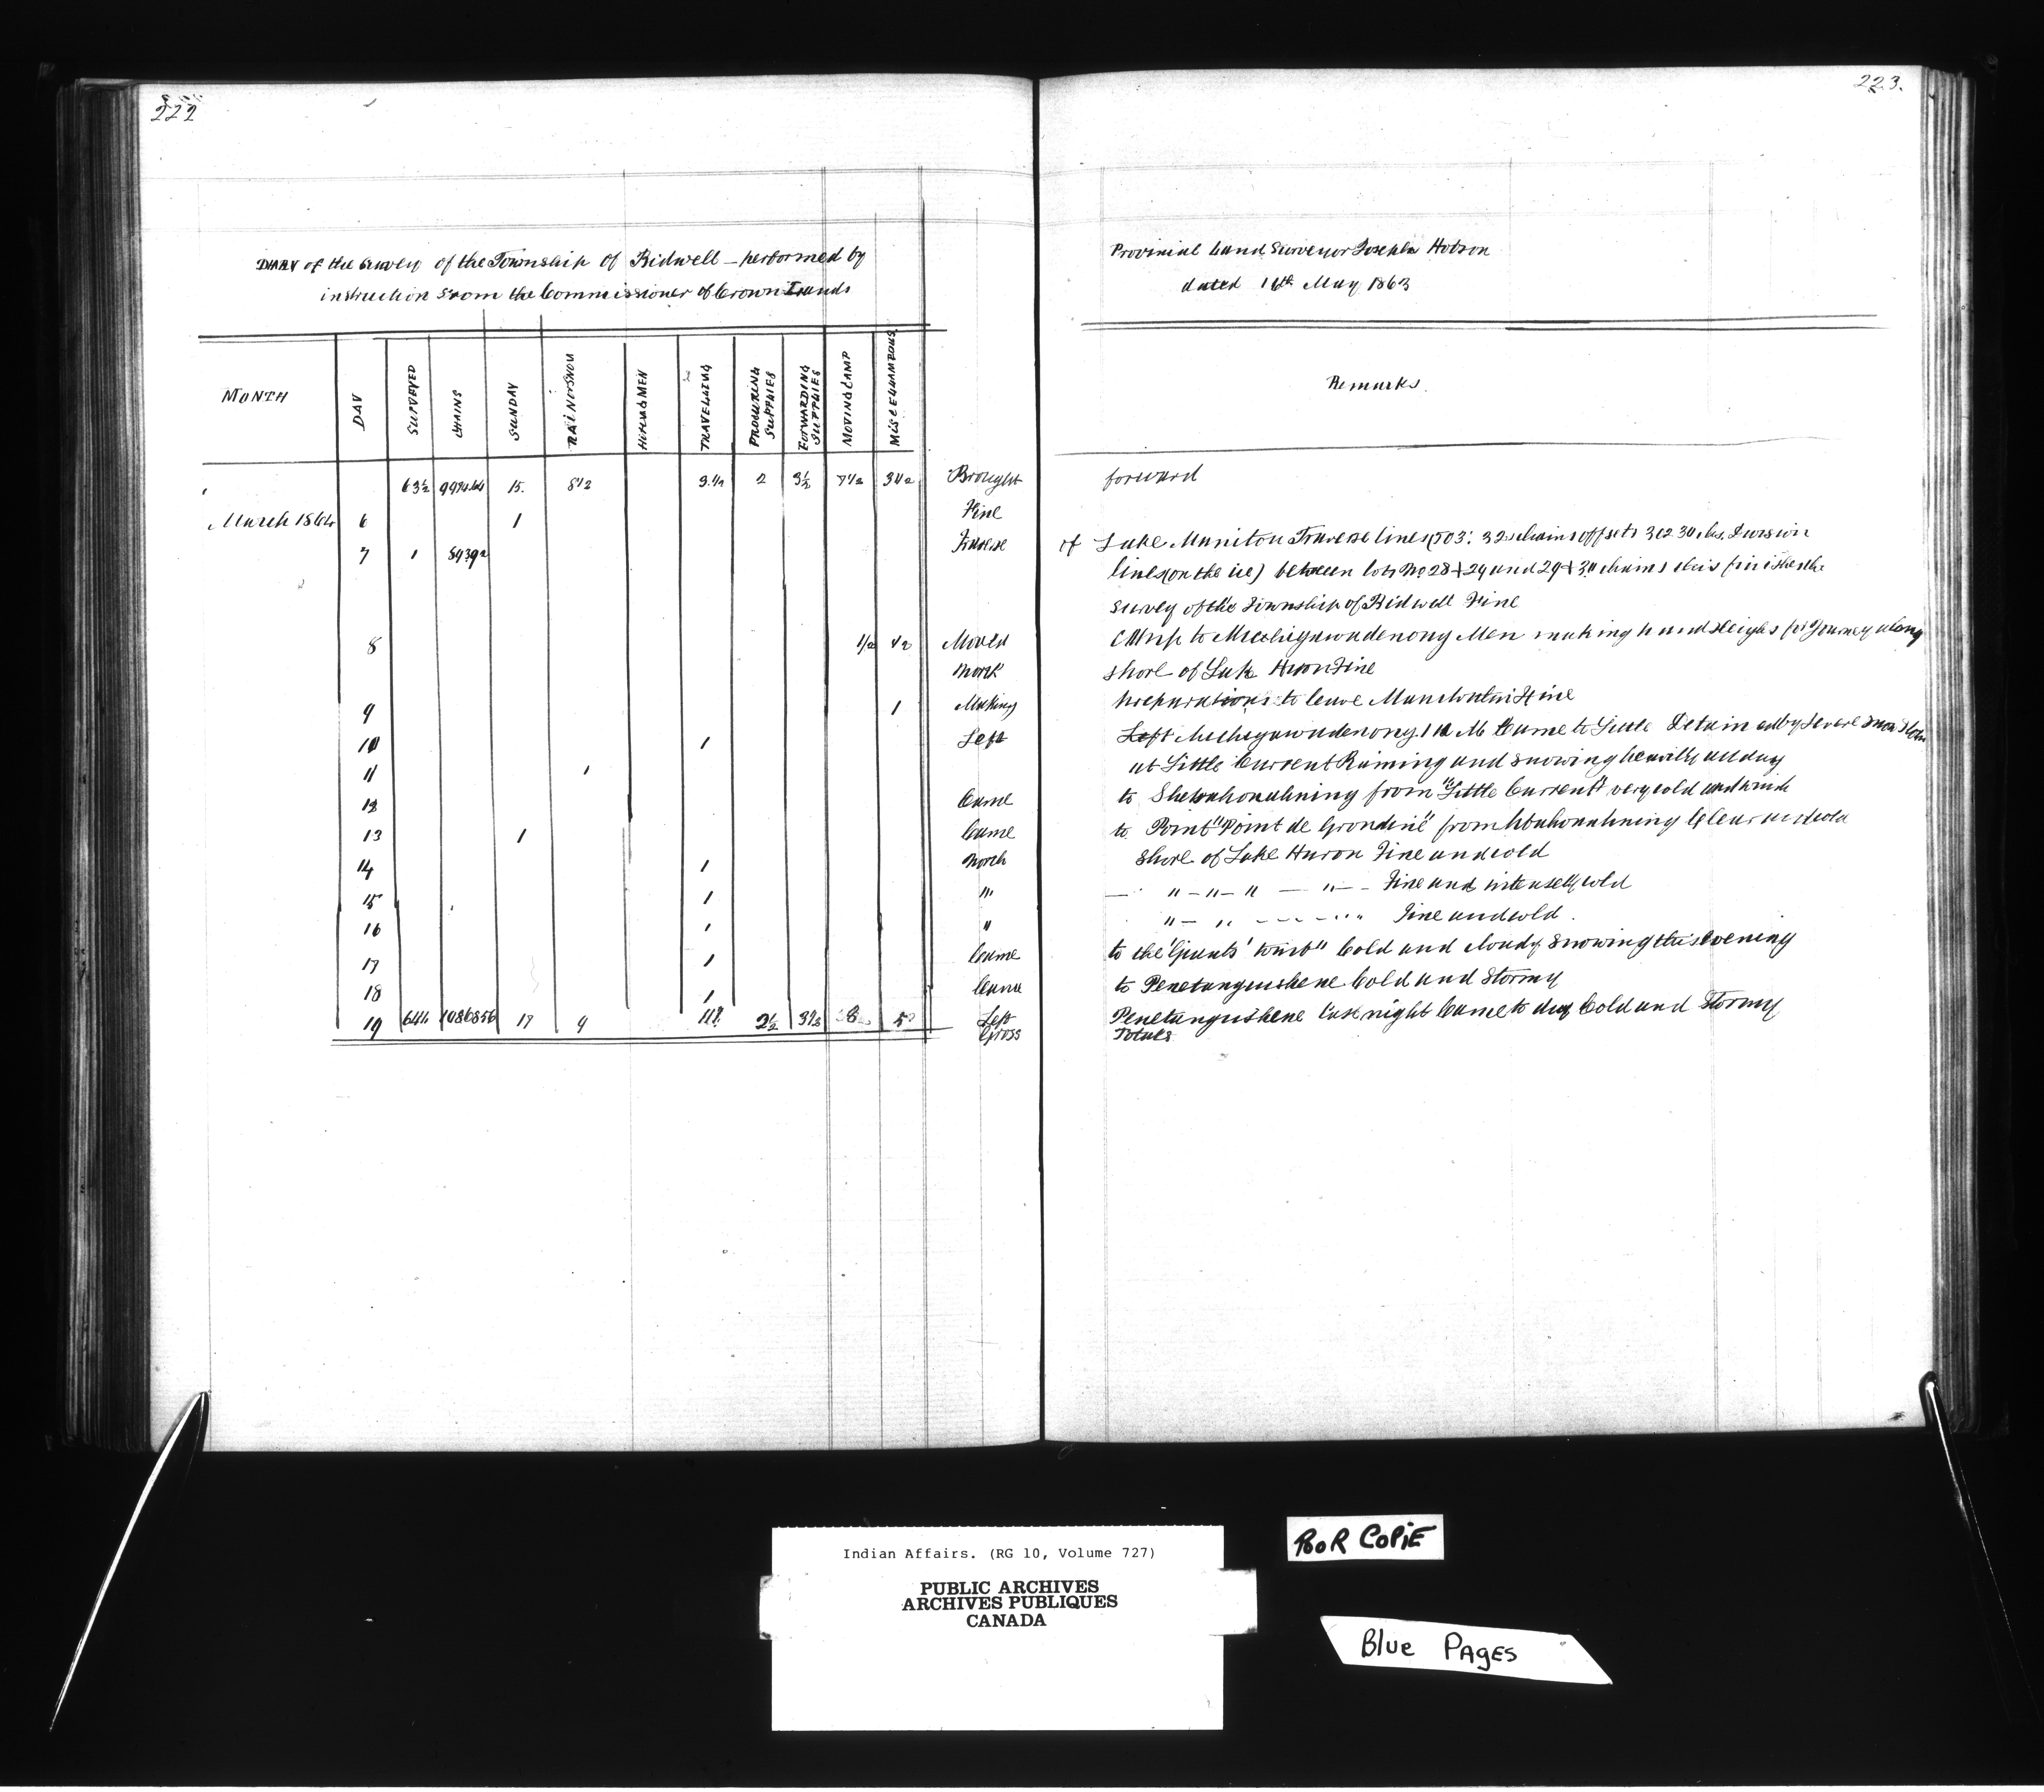 222
223.
DIARY of the Survey of the Township of Bidwell – performed by
instruction from the Commissioner of Crown Lands
Provinial Land Surveyor Joseph Hobson
dated 16th May 1863
MONTH DAY SURVEYED CHAINS SUNDAY RAIN OR SNOW HIRING MEN TRAVELLING PROCURING SUPPLIES FORWARDING SUPPLIES MOVING CAMP MISCELLANEOUS
Remarks.
63½ 15. 8½ 9.½ 2 3½ 7½ 3½ Brought forward
March 1864 6 1 Fine
7 1 Traverse of Lake Manitou Traverse lines 503. 32 chains offsets 302 30 chs. Division
lines (on the ice) between lots No 28 & 29 and 29 & 30 chains this finishes the
survey of the Township of Bidwell Fine
8 ½ ½ Moved Camp to Mechigawadenong Men making hand sleighs for Journey along
North shore of Lake Huron Fine
9 1 Making preparations to leave Fine
10 1 Left Left Mechigawadenong Came to Little Detained by Severe Snow Storm
11 1 at Little Current Raining and snowing heavily all day
12 Came to from "Little Current" very cold and wind
13 1 Came to Point "Point de Grondine" from Clear and cold
14 1 North Shore of Lake Huron Fine and cold
15 1 " — " – " – " — " – – Fine and intensely cold
16 1 " " — " - - - " Fine and cold.
17 1 Came to the Cold and cloudy Snowing this evening
18 1 Came to Penetanguishene Cold and Stormy
19 17 9 2½ 8 5 Left Penetanguishene last night Came to day Cold and Stormy
Gross Totals
Indian Affairs. (RG 10, Volume 727)
PUBLIC ARCHIVES
ARCHIVES PUBLIQUES
CANADA
POOR COPIE
Blue PAges